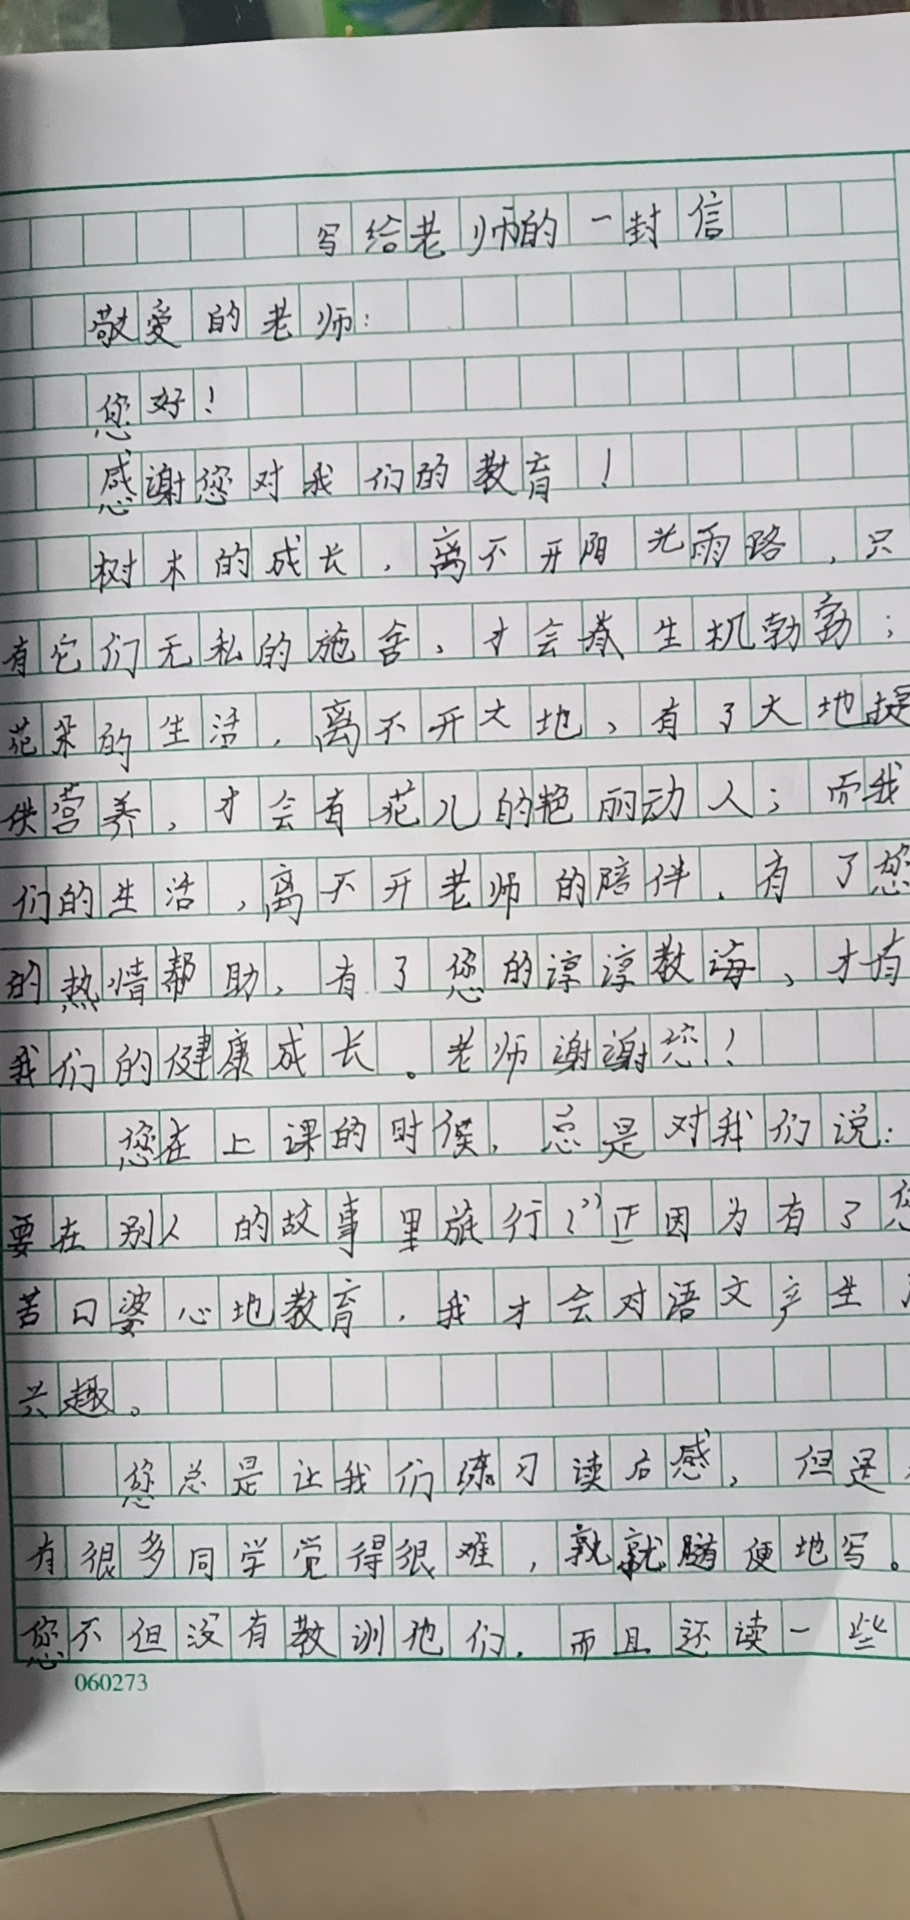 写给老师的一封信
敬爱的老师：
您好！
感谢您对我们的教育！
树木的成长，离不开阳光雨路，只
有它们无私的施舍，才会 生机勃勃；
花朵的生活，离不开大地，有了大地提
供营养，才会有花儿的艳丽动人；而我
们的生活，离不开老师的陪伴，有了您
的热情帮助，有了您的谆谆教诲，才有
我们的健康成长。老师谢谢您！
您在上课的时候，总是对我们说：
要在别人的故事里旅行。”正因为有了您
苦口婆心地教育，我才会对语文产生
兴趣。
您总是让我们练习读后感，但是
有很多同学觉得很难，就就随便地写。
您不但没有教训他们，而且还读一些
060273